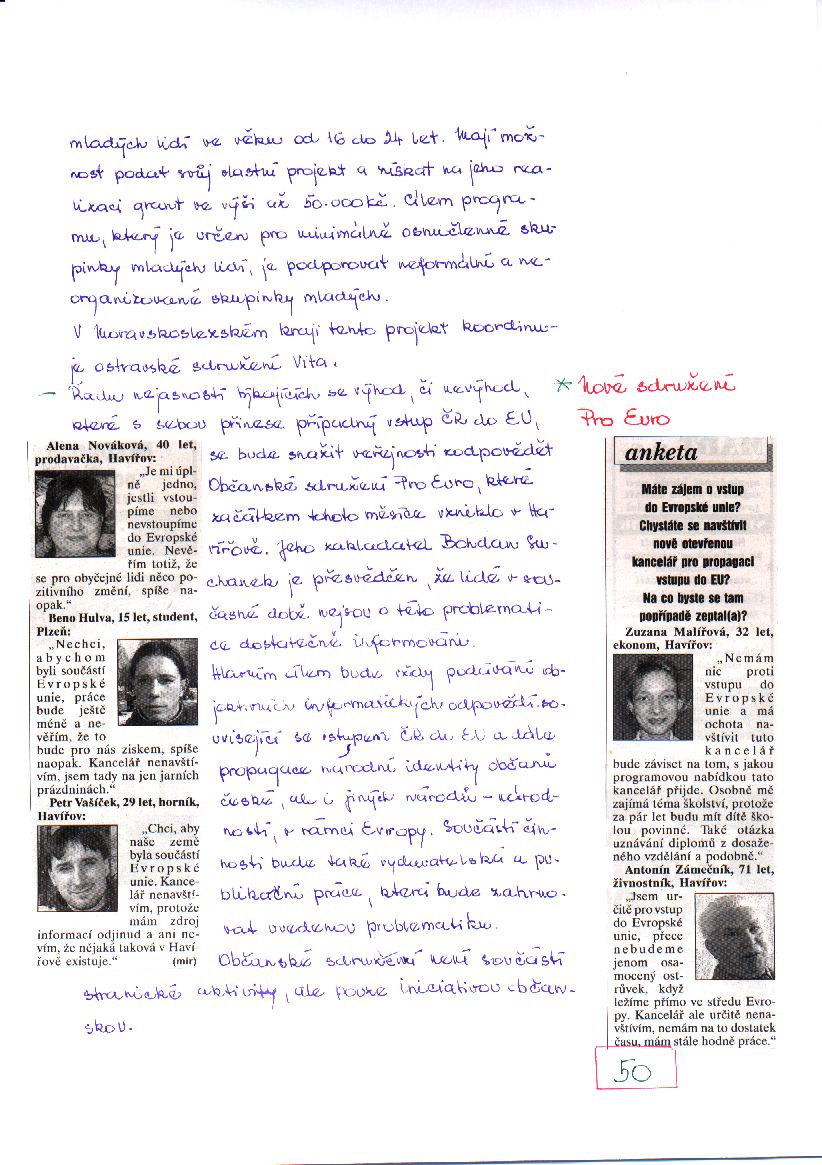 mladých lidí ve věku od 16 do 24 let. Mají mož-
nost podat svůj vlastní projekt a získat na jeho rea-
lizaci grant ve výši až 50.000kč. Cílem progra-
mu, který je určen pro minimálně osmičlenné sku-
pinky mladých lidí, je podporovat neformální a ne-
organizované skupinky mladých.
V Moravskoslezském kraji tento projekt koordinu-
je ostravské sdružení Vita.
– Řadu nejasností týkajících se výhod, či nevýhod,
které s sebou přinese případný vstup ČR do EU,
se bude snažit veřejnosti zodpovědět
Občanské sdružení Pro Euro, které
začátkem tohoto měsíce vzniklo v Ha-
vířově. Jeho zakladatel Bohdan Su-
chanek je přesvědčen, že lidé v sou-
časné době nejsou o této problemati-
ce dostatečně informováni.
Hlavním cílem bude vždy podávání ob-
jektivních informatických odpovědí so-
uvisející se vstupem ČR do EU a dále
propagace národní identity občanů
české, ale i jiných národů - národ-
ností, v rámci Evropy. Součástí čin-
nosti bude také vydavatelská a pu-
blikační práce, která bude zahrno-
vat uvedenou problematiku.
Občanské sdružení není součástí
stranické aktivity, ale pouze iniciativou občan-
skou.
* Nové sdružení
Pro Euro
Alena Nováková, 40 let,
prodavačka, Havířov:
„Je mi úpl-
ně jedno,
jestli vstou-
píme nebo
nevstoupíme
do Evropské
unie. Nevě-
řím totiž, že
se pro obyčejné lidi něco po-
zitivního změní, spíše na-
opak.“
Beno Hulva, 15 let, student,
Plzeň:
„Nechci,
abychom
byli součástí
Evropské
unie, práce
bude ještě
méně a ne-
věřím, že to
bude pro nás ziskem, spíše
naopak. Kancelář nenavští-
vím, jsem tady na jen jarních
prázdninách.“
Petr Vašíček, 29 let, horník,
Havířov:
„Chci, aby
naše země
byla součástí
Evropské
unie. Kance-
lář nenavští-
vím, protože
mám zdroj
informací odjinud a ani ne-
vím, že nějaká taková v Haví-
řově existuje.“ (mir)
anketa
Máte zájem o vstup
do Evropské unie?
Chystáte se navštívit
nově otevřenou
kancelář pro propagaci
vstupu do EU?
Na co byste se tam
popřípadě zeptal(a)?
Zuzana Malířová, 32 let,
ekonom, Havířov:
„Nemám
nic proti
vstupu do
Evropské
unie a má
ochota na-
vštívit tuto
kancelář
bude záviset na tom, s jakou
programovou nabídkou tato
kancelář přijde. Osobně mě
zajímá téma školství, protože
za pár let budu mít dítě ško-
lou povinné. Také otázka
uznávání diplomů z dosaže-
ného vzdělání a podobně.“
Antonín Zámečník, 71 let,
živnostník, Havířov:
„Jsem ur-
čitě pro vstup
do Evropské
unie, přece
nebudeme
jenom osa-
mocený ost-
růvek, když
ležíme přímo ve středu Evro-
py. Kancelář ale určitě nena-
vštívím, nemám na to dostatek
času, mám stále hodně práce.“
50